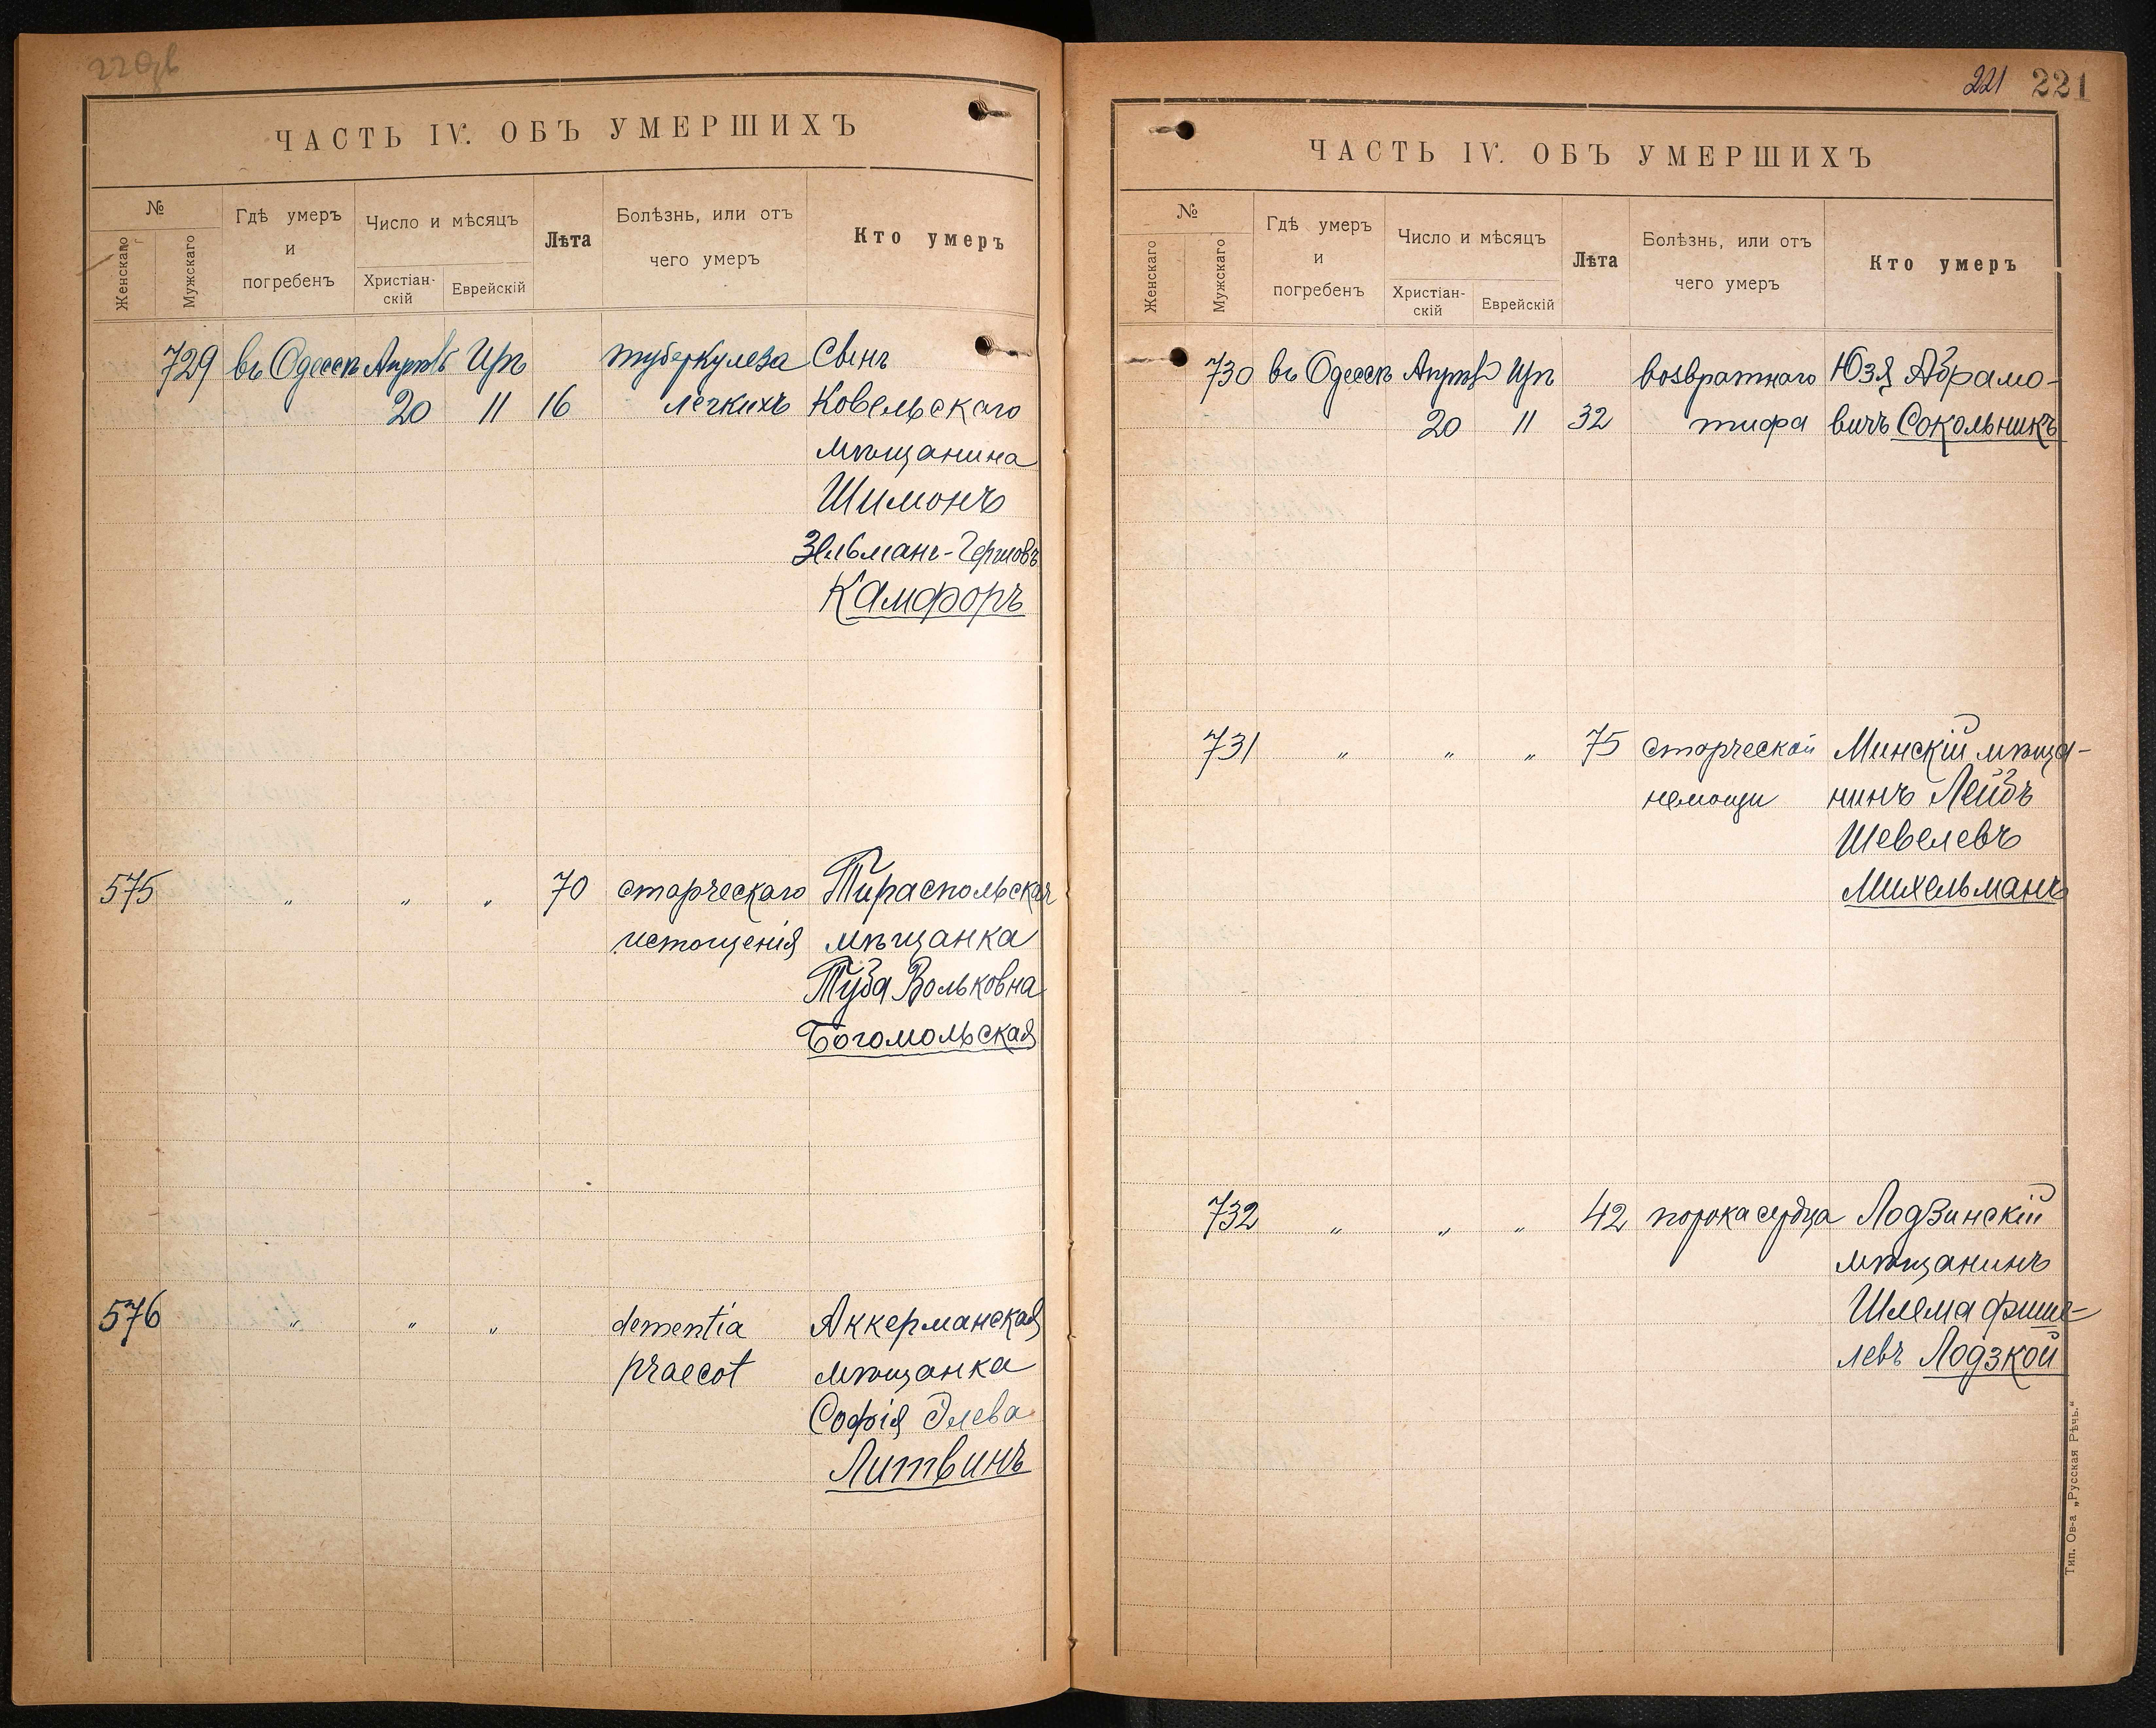 220об
ЧАСТЬ IV. ОБЪ УМЕРШИХЪ
№
Женскаго
Мужскаго
Гдѣ умеръ и погребенъ
Число и мѣсяцъ
Христіан-скій
Еврейскій
Лѣта
Болѣзнь, или отъ чего умеръ
Кто умеръ
729 въ Одессѣ Апрѣль Иръ туберкулеза Сынъ
20 11 16 легкихъ Ковельскаго
мѣщанина
Шимонъ
Зельманъ-Гершовъ
Камфоръ
575 " " " 70 старческаго Тираспольская
истощенія мѣщанка
Туба Вольковна
Богомольская
576 " " " dementia Аккерманская
praecot мѣщанка
Софія Элева
Литвинъ
221 221
ЧАСТЬ IV. ОБЪ УМЕРШИХЪ
№
Женскаго
Мужскаго
Гдѣ умеръ и погребенъ
Число и мѣсяцъ
Христіан-скій
Еврейскій
Лѣта
Болѣзнь, или отъ чего умеръ
Кто умеръ
730 въ Одессѣ Апрѣль Иръ возвратнаго Юзя Абрамо-
20 11 32 тифа вичъ Сокольникъ
731 " " " 75 старческой Минскій мѣща-
немощи нинъ Лейбъ
Шевелевъ
Михельманъ
732 " " " 42 порока сердца Лодзинскій
мѣщанинъ
Шлема Фише-
левъ Лодзкой
Тип. Ов-а „Русская Рѣчь.“